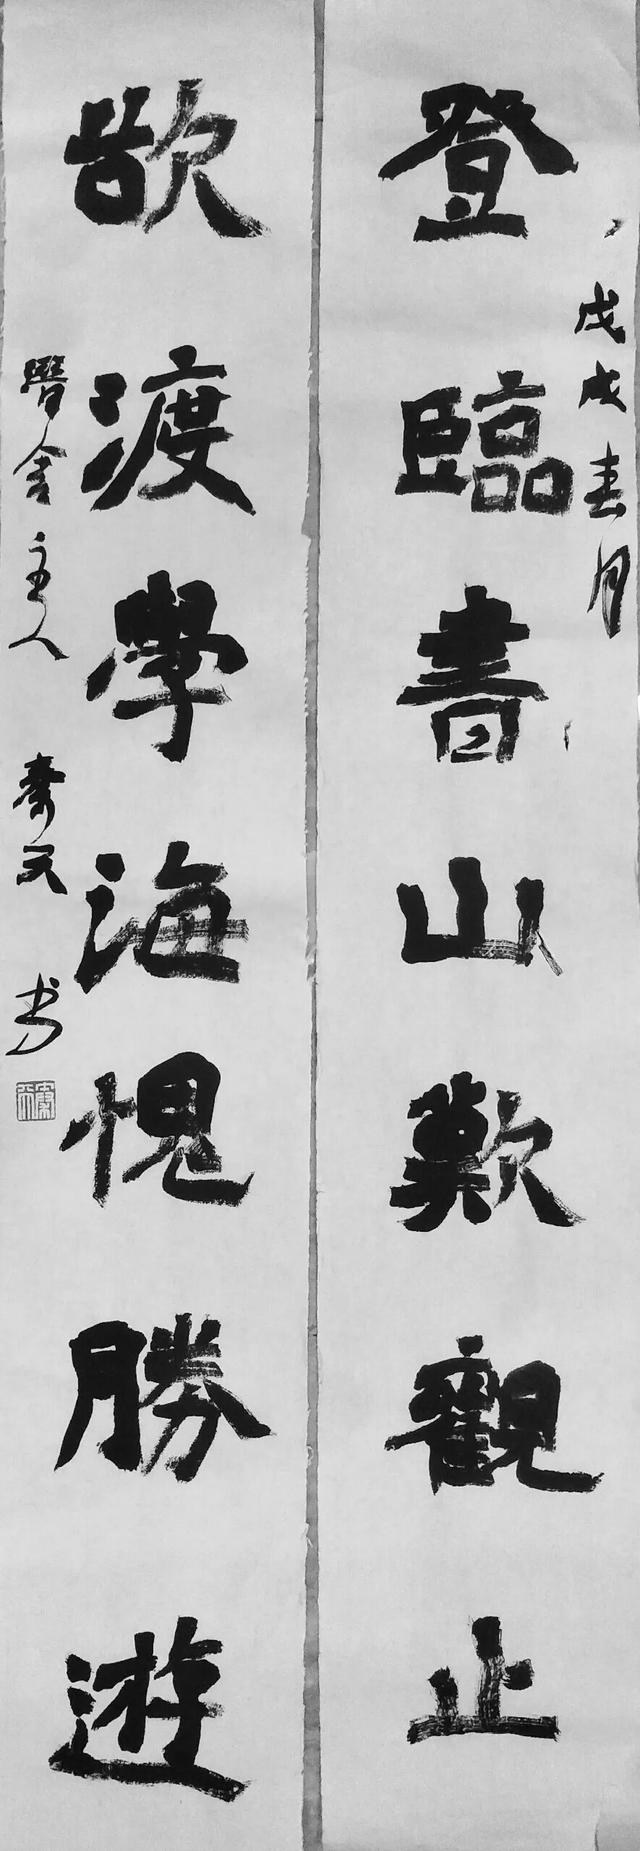 登臨書山歎觀止
戊戌春月
欲渡學海愧勝遊
舍主人 齊天 书